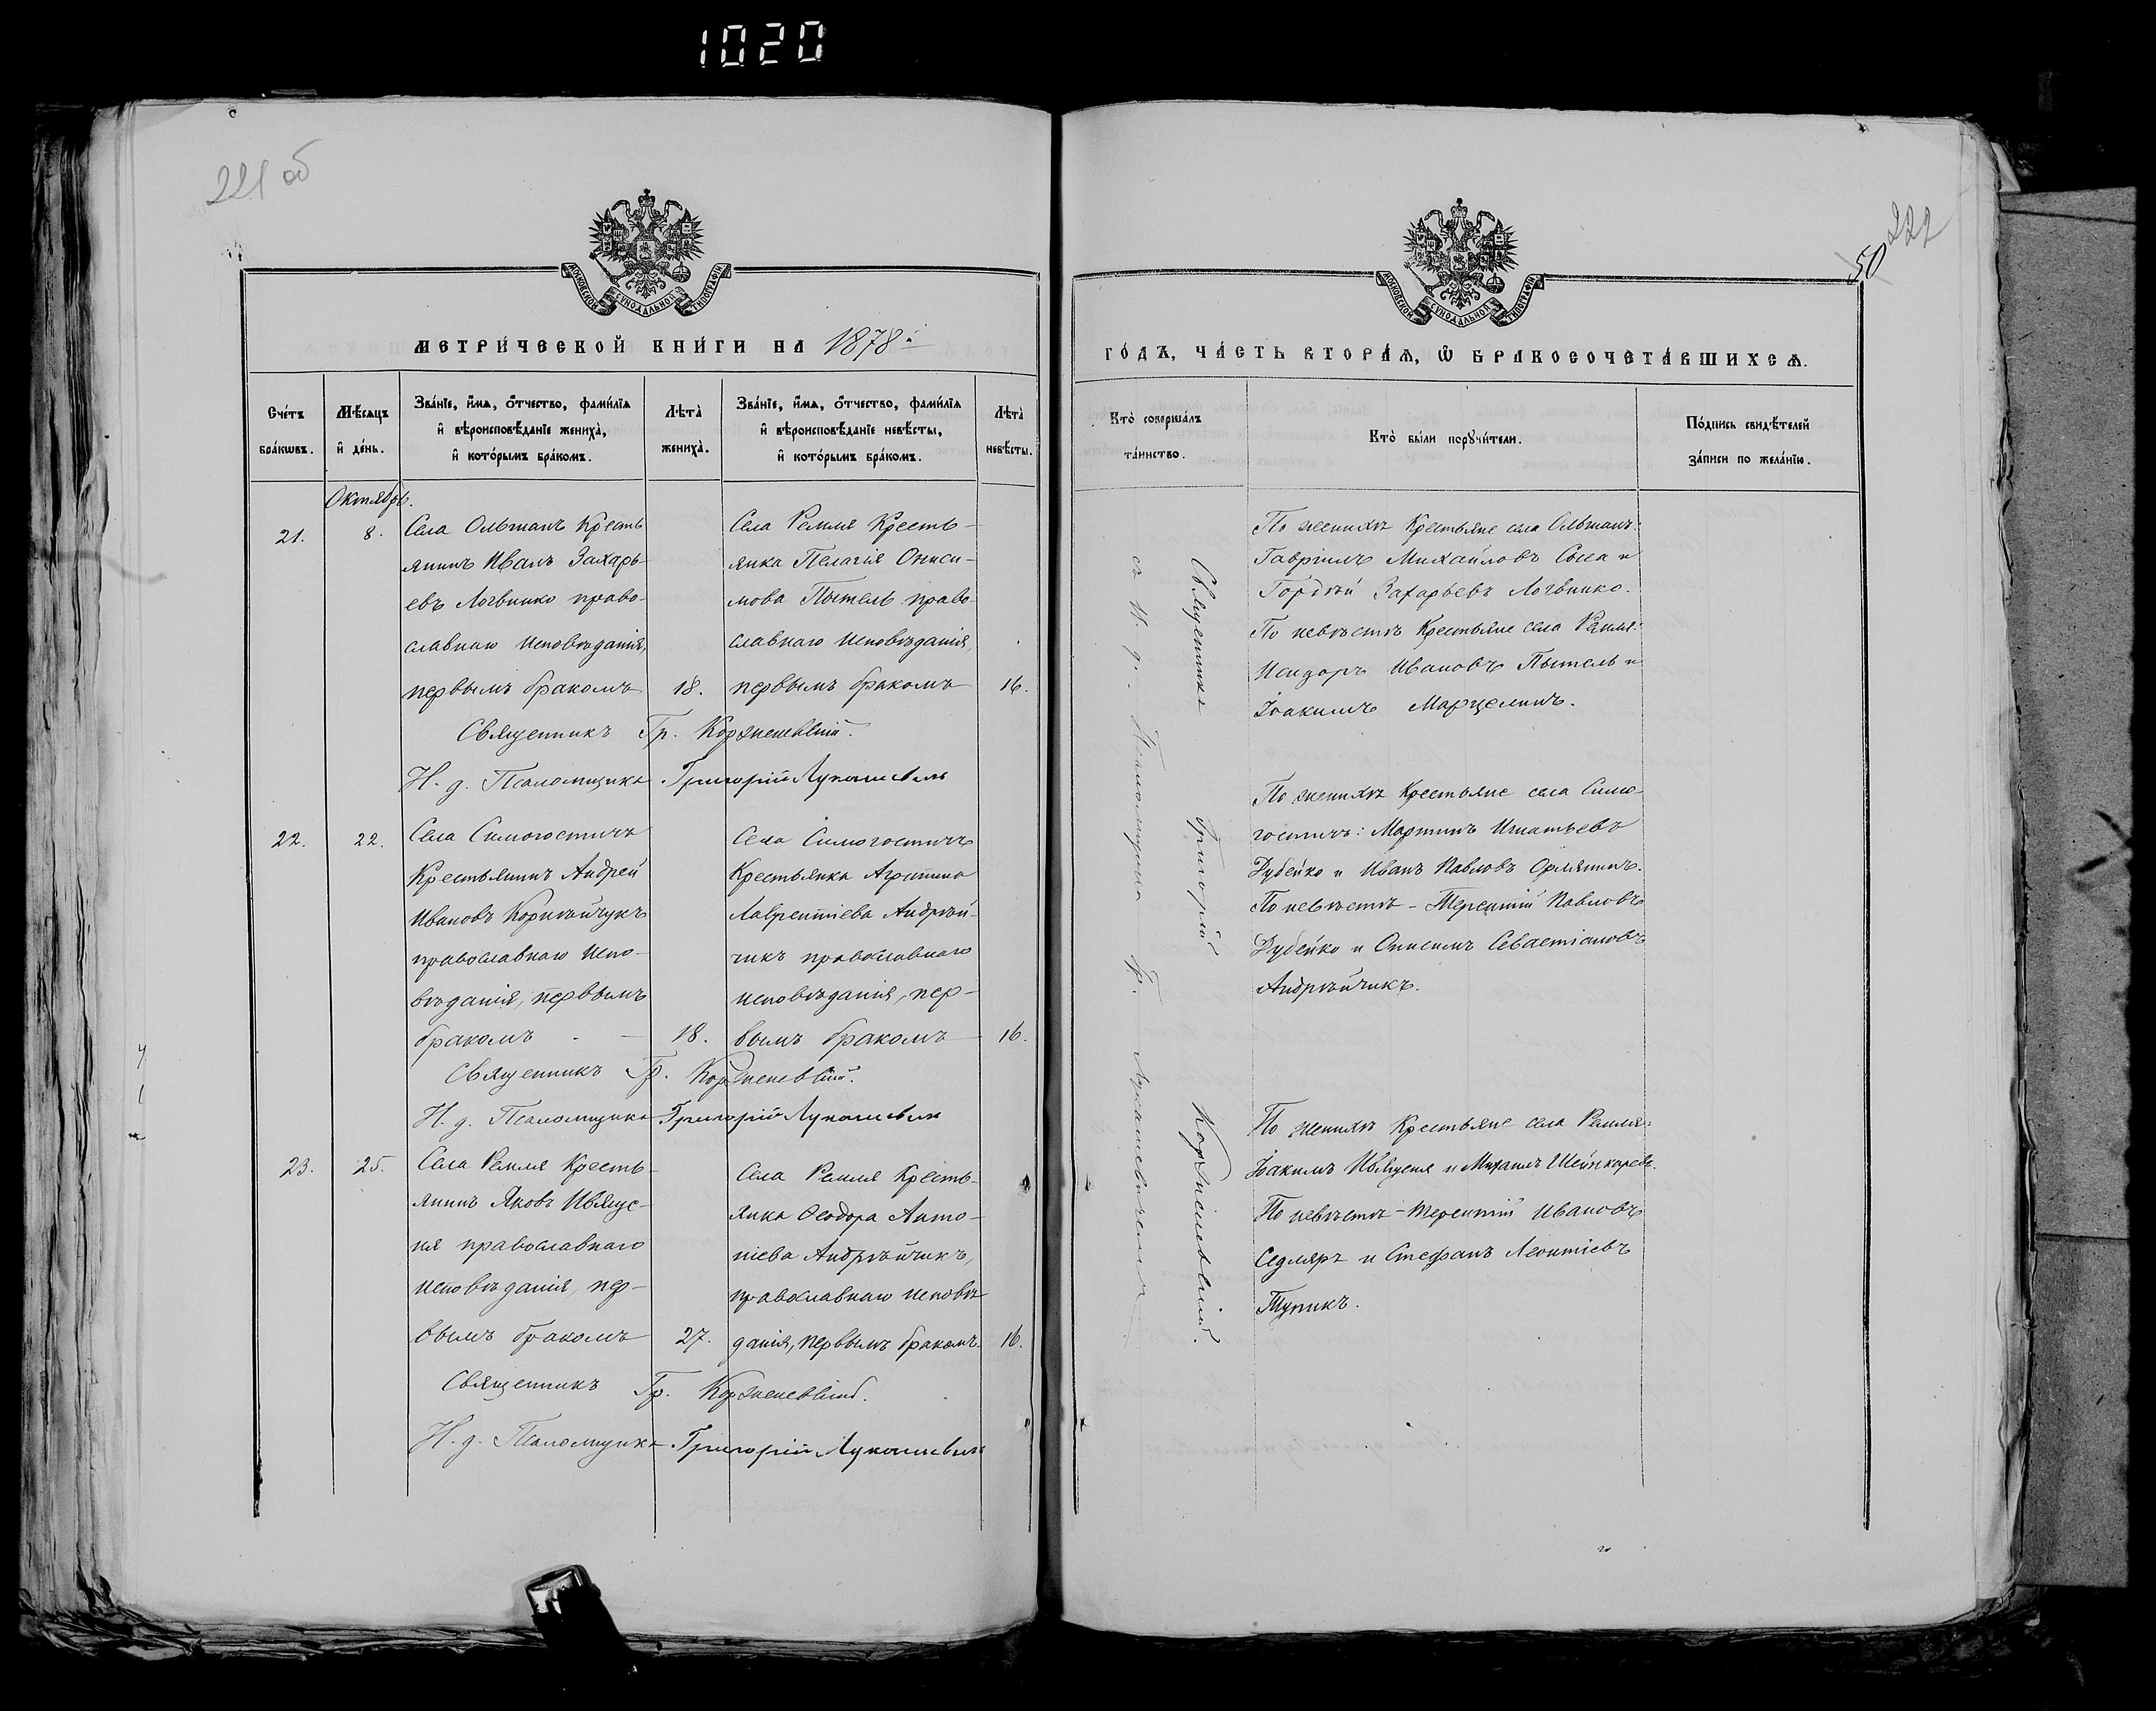 1020
221 об
МОСКОВСКОЙ СѴНОДАЛЬНОЙ ТИПОГРАФІИ
МЕТРИ́ЧЕСКОЙ КНИ́ГИ НА 1878 й
Сче́тъ бра́кωвъ.
Мѣ́сяцъ и҆ де́нь.
Зва́нїе, и҆́мѧ, ѻ҆́тчество, фами́лїѧ
и҆ вѣроисповѣ́данїе жениха̀,
и҆ кото́рымъ бра́комъ.
Лѣта̀ жениха̀.
Зва́нїе, и҆́мѧ, ѻ҆́тчество, фами́лїѧ
и҆ вѣроисповѣ́данїе невѣ́сты,
и҆ кото́рымъ бра́комъ.
Лѣта̀ невѣ́сты.
Октябрь.
21.
8.
Села Ольманъ Кресть
янинъ Иванъ Захарь-
евъ Логвинко право-
славнаго исповѣданія,
первымъ бракомъ
18.
Села Ремля Кресть-
янка Пелагія Ониси-
мова Пытель право-
славнаго исповѣданія,
первымъ бракомъ
16.
Священникъ Гр. Корженевскій.
И. д. Псаломщика Григорій Лукашевичъ
22.
22.
Села Симогостичъ
Крестьянинъ Андрей
Ивановъ Корнѣйчукъ
православнаго испо-
вѣданія, первымъ
бракомъ -
18.
Села Симогостичъ
Крестьянка Агрипина
Лаврентіева Андрѣй-
чикъ православнаго
исповѣданія, пер-
вымъ бракомъ
16.
Священникъ Гр. Корженевскій.
И. д. Псаломщика Григорій Лукашевичъ
23.
25.
Села Ремля Кресть-
янинъ Яковъ Ивяще-
ня православнаго
исповѣданія, пер-
вымъ бракомъ
27.
Села Ремля Кресть-
янка Ѳеодора Анто-
ніева Андрѣйчикъ,
православнаго исповѣ
данія, первымъ бракомъ.
16.
Священникъ Гр. Корженевскій.
И. д. Псаломщика Григорій Лукашевичъ
222
50
МОСКОВСКОЙ СѴНОДАЛЬНОЙ ТИПОГРАФІИ
ГО́ДЪ, ЧА́СТЬ ВТОРА́Ѧ, Ѽ БРАКОСОЧЕТА́ВШИХСѦ.
Кто̀ соверша́лъ
та́инство.
Кто̀ бы́ли порꙋчи́тели.
По́дпись свидѣ́телей
за́писи по жела́нїю.
Священникъ Григорій Корженевскій.
съ И. д. Псаломщика Гр. Лукашевичемъ
По женихѣ Крестьяне села Ольманъ:
Гавріилъ Михайловъ Сыса и
Гордѣй Захарьевъ Логвинко.
По невѣстѣ Крестьяне села Ремля:
Исидоръ Ивановъ Пытель и
Іоакимъ Марцелинъ.
По женихѣ Крестьяне села Симо
гостичъ: Мартинъ Игнатьевъ
Дубейко и Иванъ Павловъ Орлянинъ.
По невѣстѣ - Терентій Павловъ
Дубейко и Онисимъ Севастіановъ
Андрѣйчикъ.
По женихѣ Крестьяне села Ремля:
Іоакимъ Ивященя и Михаилъ
По невѣстѣ - Терентій Ивановъ
Седляръ и Стефанъ Леонтіевъ
Тупикъ.